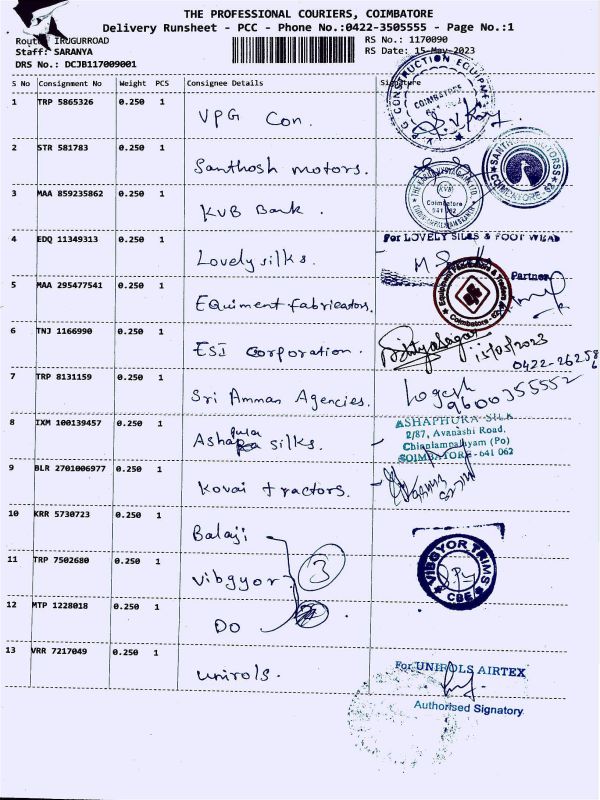 THE PROFESSIONAL COURIERS, COIMBATORE
Delivery Runsheet - PCC - Phone No.:0422-3505555 - Page No.:1
Route: IRUGURROAD
RS No.: 1170090
Staff: SARANYA
RS Date: 15-May-2023
DRS No.: DCJB117009001
S No Consignment No Weight PCS Consignee Details Signature
1 TRP 5865326 0.250 1 VPG Con.
CONSTRUCTION EQUIPMENT
COIMBATORE
2 STR 581783 0.250 1 Santhosh motors.
SANTHOSH MOTORSS
COIMBATORE-62
3 MAA 859235862 0.250 1 KVB Bank.
KVB
Coimbatore
641 062
4 EDQ 11349313 0.250 1 Lovely silks.
For LOVELY SILKS & FOOT WEAR
Partner
5 MAA 295477541 0.250 1 Equiment fabricators.
Equipment Fabricators & Traders
Coimbatore-62
6 TNJ 1166990 0.250 1 ESI Corporation.
15/05/2023
7 TRP 8131159 0.250 1 Sri Amman Agencies.
Logesh
9600355552
8 IXM 100139457 0.250 1 Ashapula silks.
ASHAPHURA SILK
2/87, Avanashi Road,
Chinniampalayam (Po)
COIMBATORE-641 062
9 BLR 2701006977 0.250 1 Kovai tractors.
10 KRR 5730723 0.250 1 Balaji
11 TRP 7502680 0.250 1 Vibgyor
3
VIBGYOR TRIMS
CBE
12 MTP 1228018 0.250 1 DO
13 VRR 7217049 0.250 1 Unirols.
For UNIROLS AIRTEX
Authorised Signatory